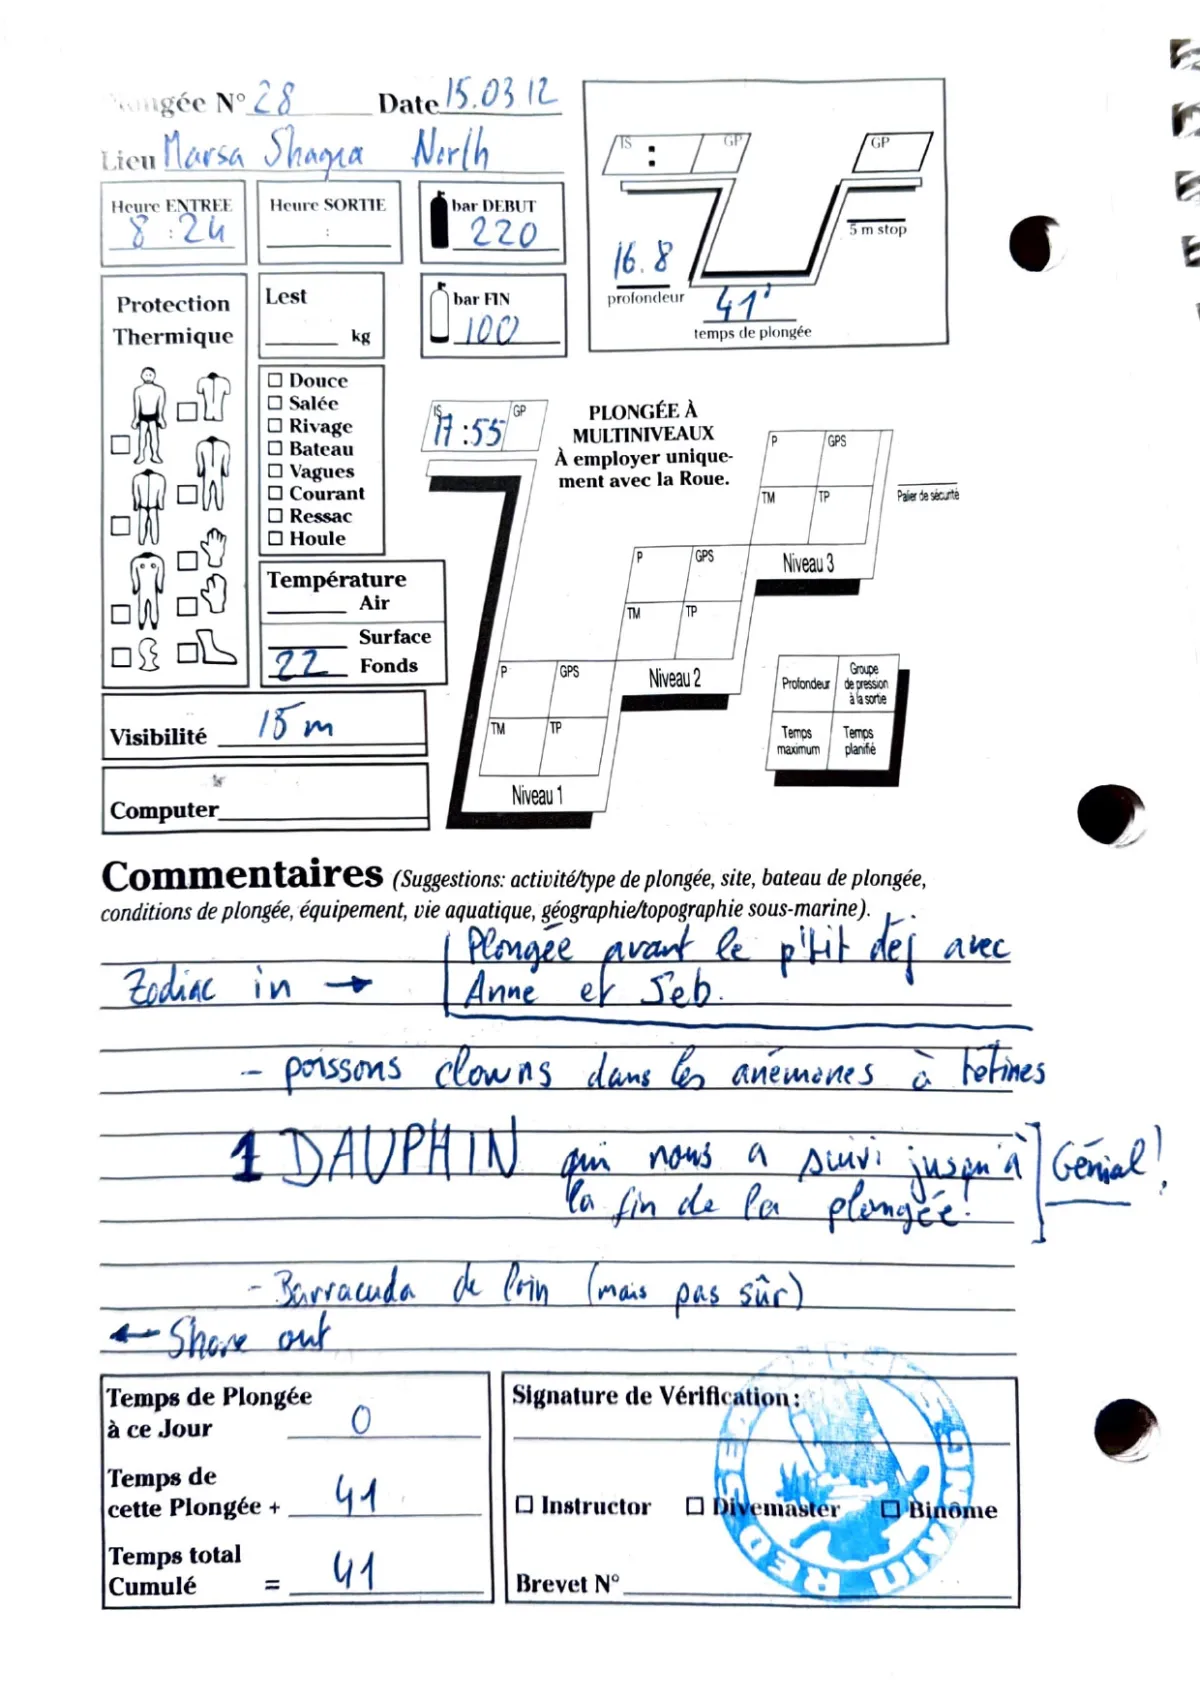 Plongée N° 28 Date 15.03 12
Lieu Marsa Shagra North
Heure ENTREE
8:24
Heure SORTIE
:
bar DEBUT
220
IS : GP
GP
16.8
profondeur
41'
temps de plongée
5 m stop
Protection
Thermique
Lest
kg
bar FIN
100
Douce
Salée
Rivage
Bateau
Vagues
Courant
Ressac
Houle
IS GP
17:55
PLONGÉE À
MULTINIVEAUX
À employer unique-
ment avec la Roue.
P GPS
TM TP
Niveau 3
Palier de sécurité
P GPS
TM TP
Niveau 2
P GPS
TM TP
Niveau 1
Profondeur
Groupe
de pression
à la sortie
Temps
maximum
Temps
planifié
Température
Air
Surface
22 Fonds
Visibilité 15 m
Computer
Commentaires (Suggestions: activité/type de plongée, site, bateau de plongée,
conditions de plongée, équipement, vie aquatique, géographie/topographie sous-marine).
Plongée avant le p'tit déj avec
Zodiac in → Anne et Seb.
- poissons clowns dans les anémones à tétines
1 DAUPHIN qui nous a suivi jusqu'à Génial!
la fin de la plongée!
- Barracuda de loin (mais pas sûr)
← Shore out
Temps de Plongée
à ce Jour 0
Temps de
cette Plongée + 41
Temps total
Cumulé = 41
Signature de Vérification:
Instructor Divemaster Binôme
Brevet N°
RED SEA